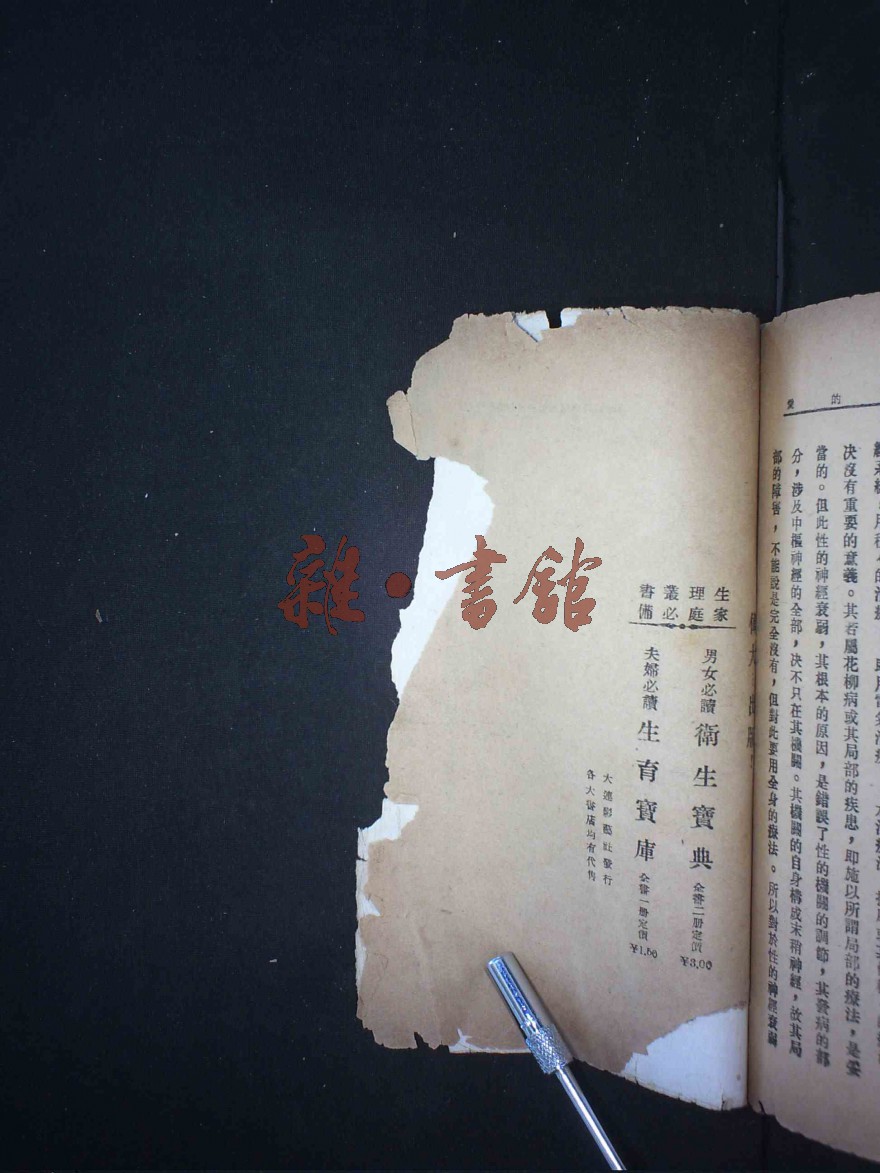 愛 的
決沒有重要的意義。其若屬花柳病或其局部的疾患，即施以所謂局部的療法，是妥
當的。但此性的神經衰弱，其根本的原因，是錯誤了性的機關的調節，其發病的部
分，涉及中樞神經的全部，決不只在其機關。其機關的自身構成末稍神經，故其局
部的障害，不能說是完全沒有，但對此要用全身的療法。所以對於性的神經衰弱
生理叢書
家庭必備
男女必讀 衛生寶典 全書二册定價 ¥3.00
夫婦必讀 生育寶庫 全書一册定價 ¥1.50
大連影藝社發行
各大書店均有代售
雜·書館